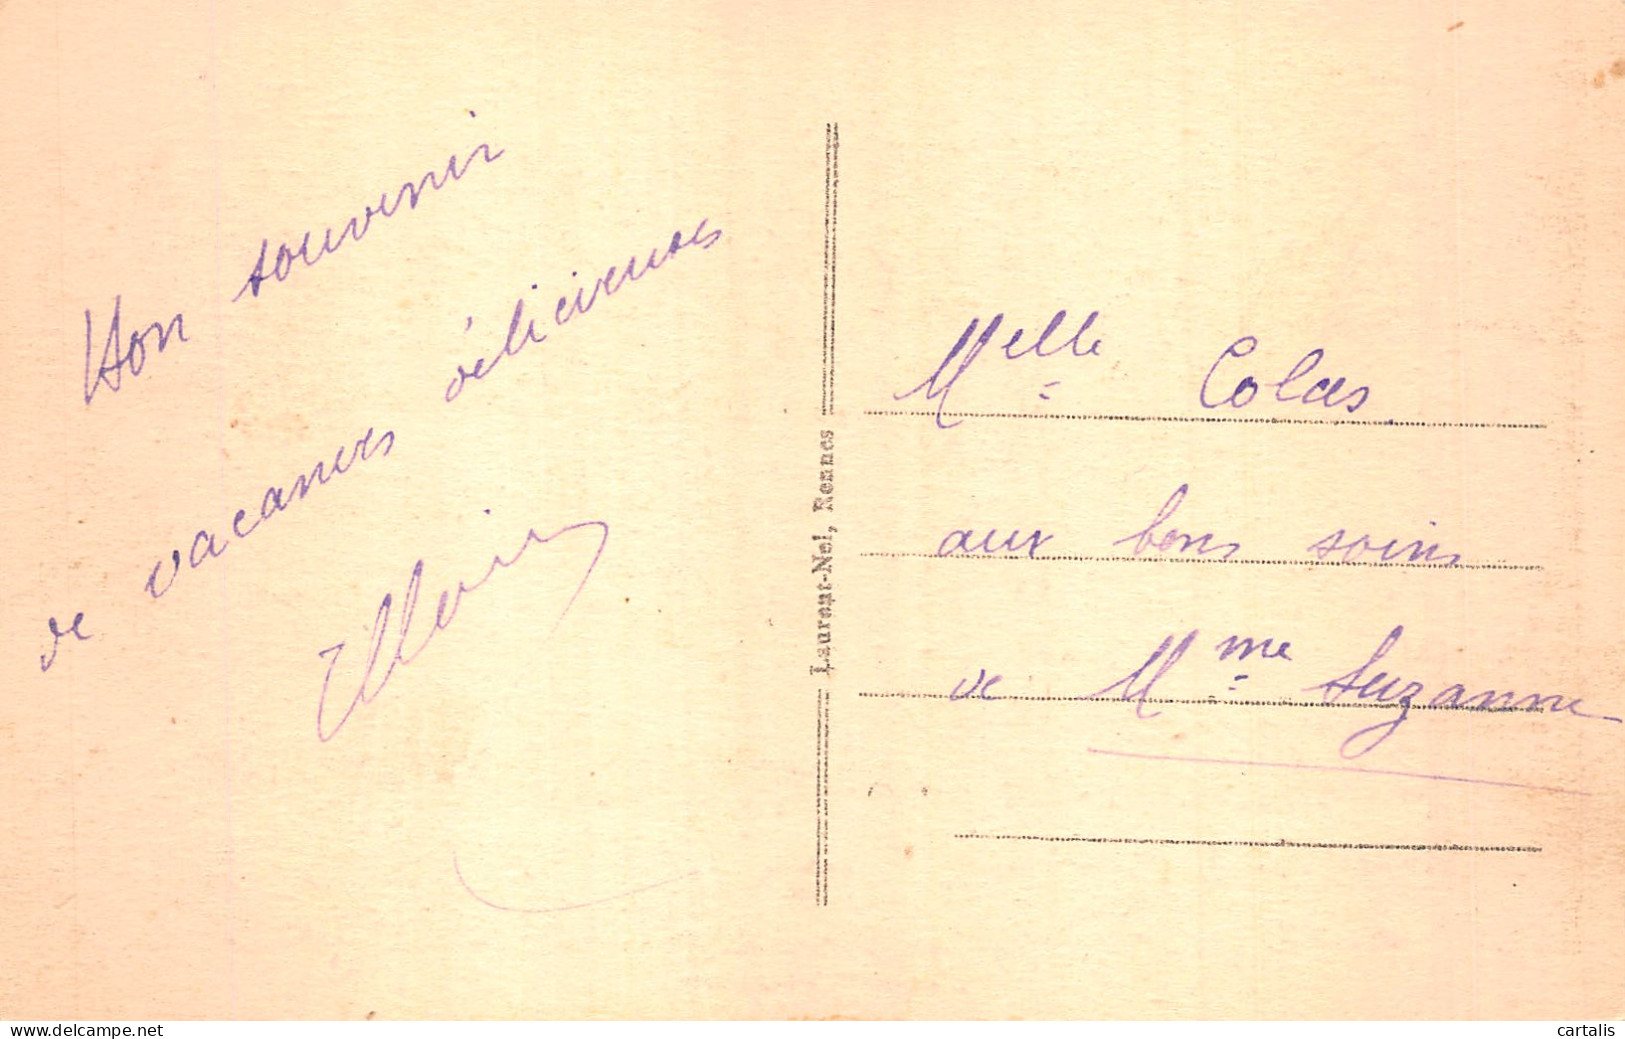 Bon souvenir
de vacances délicieuses
Laurent-Nel, Rennes
Melle Colas
aux bons soins
de Mme Suzanne
www.delcampe.net
cartalis